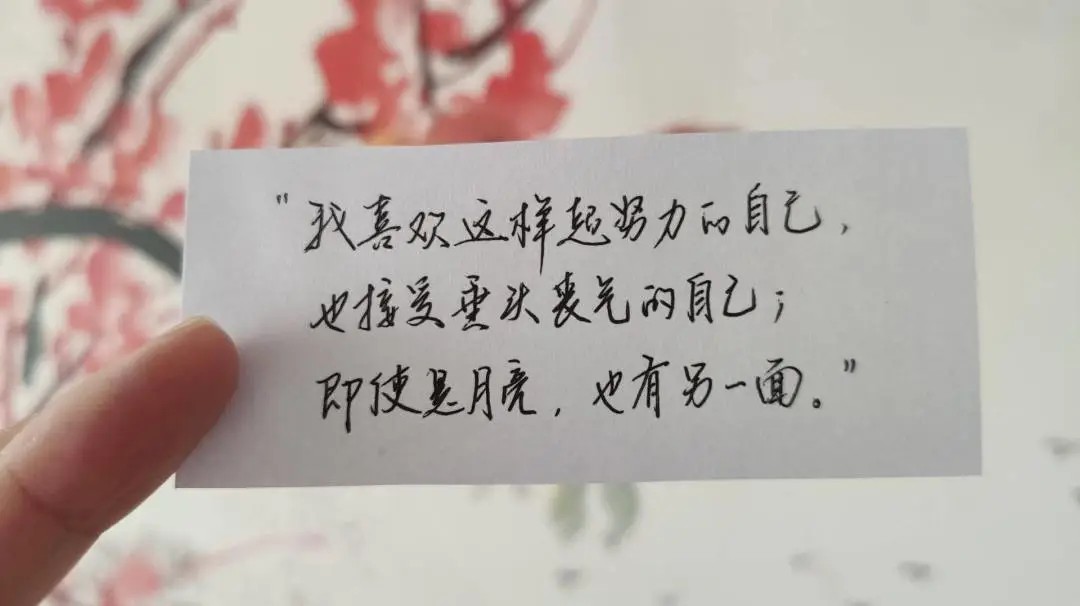 "我喜欢这样起努力的自己，
也接受垂头丧气的自己；
即使是月亮，也有另一面。"